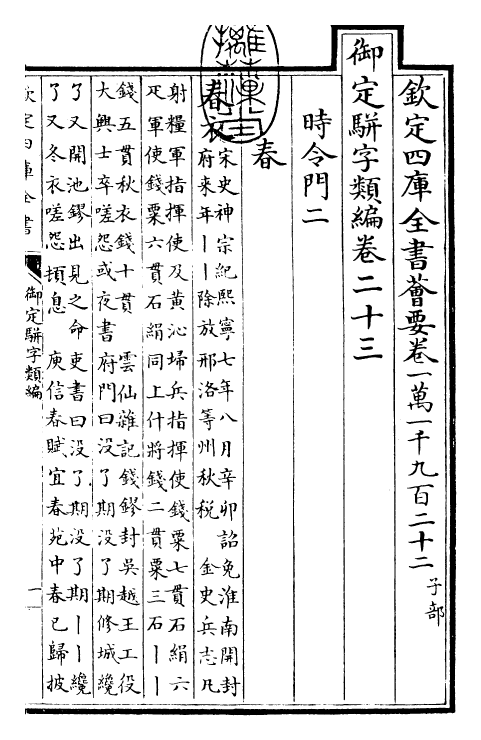 欽定四庫全書薈要卷一萬一千九百二十二 子部
御定駢字類編卷二十三
時令門二
春
春衣 宋史神宗紀熙寧七年八月辛卯詔免淮南開封
府來年丨丨除放邢洛等州秋税 金史兵志凡
射糧軍指揮使及黄沁埽兵指揮使錢粟七貫石絹六
疋軍使錢粟六貫石絹同上什將錢二貫粟三石丨丨
錢五貫秋衣錢十貫 雲仙雜記錢鏐封吳越王工役
大興士卒嗟怨或夜書府門曰没了期没了期修城纔
了又開池鏐出見之命吏書曰没了期没了期丨丨纔
了又冬衣嗟怨頓息 庾信春賦宜春苑中春已歸披
欽定四庫全書
御定駢字類編
一